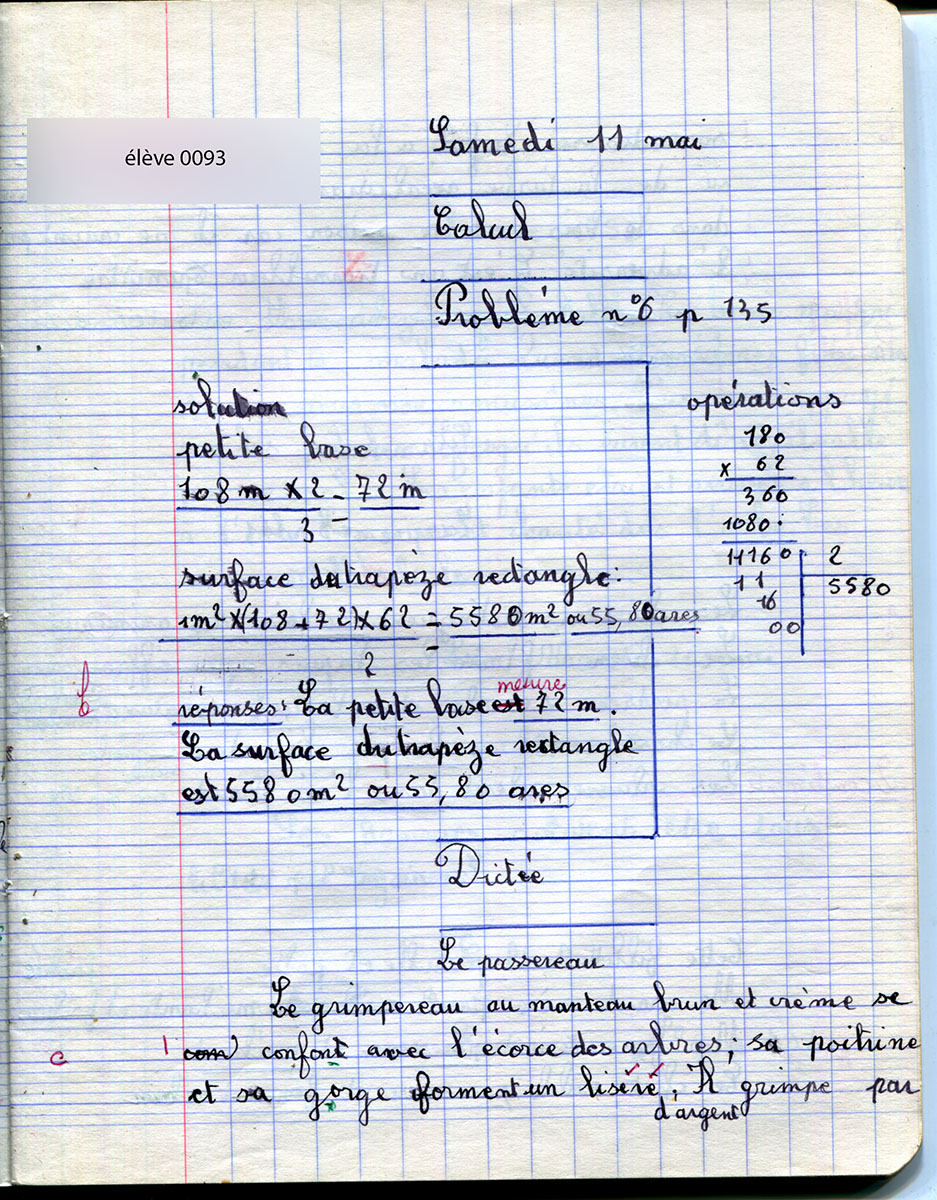 élève 0093
Samedi 11 mai
Calcul
Problème n°6 p 135
solution
petite base
108 m × 2 = 72 m
3
surface du trapèze rectangle:
1m² × (108 + 72) × 62 = 5580 m² ou 55,80 ares
2
b
mesure
réponses: La petite base est 72 m.
La surface du trapèze rectangle
est 5580 m² ou 55,80 ares
opérations
180
x 62
360
1080.
11160 2
11 5580
16
00
Dictée
Le passereau
Le grimpereau au manteau brun et crème se
c 1 com confont avec l'écorce des arbres; sa poitrine
et sa gorge forment un liséré. Il grimpe par
d'argent